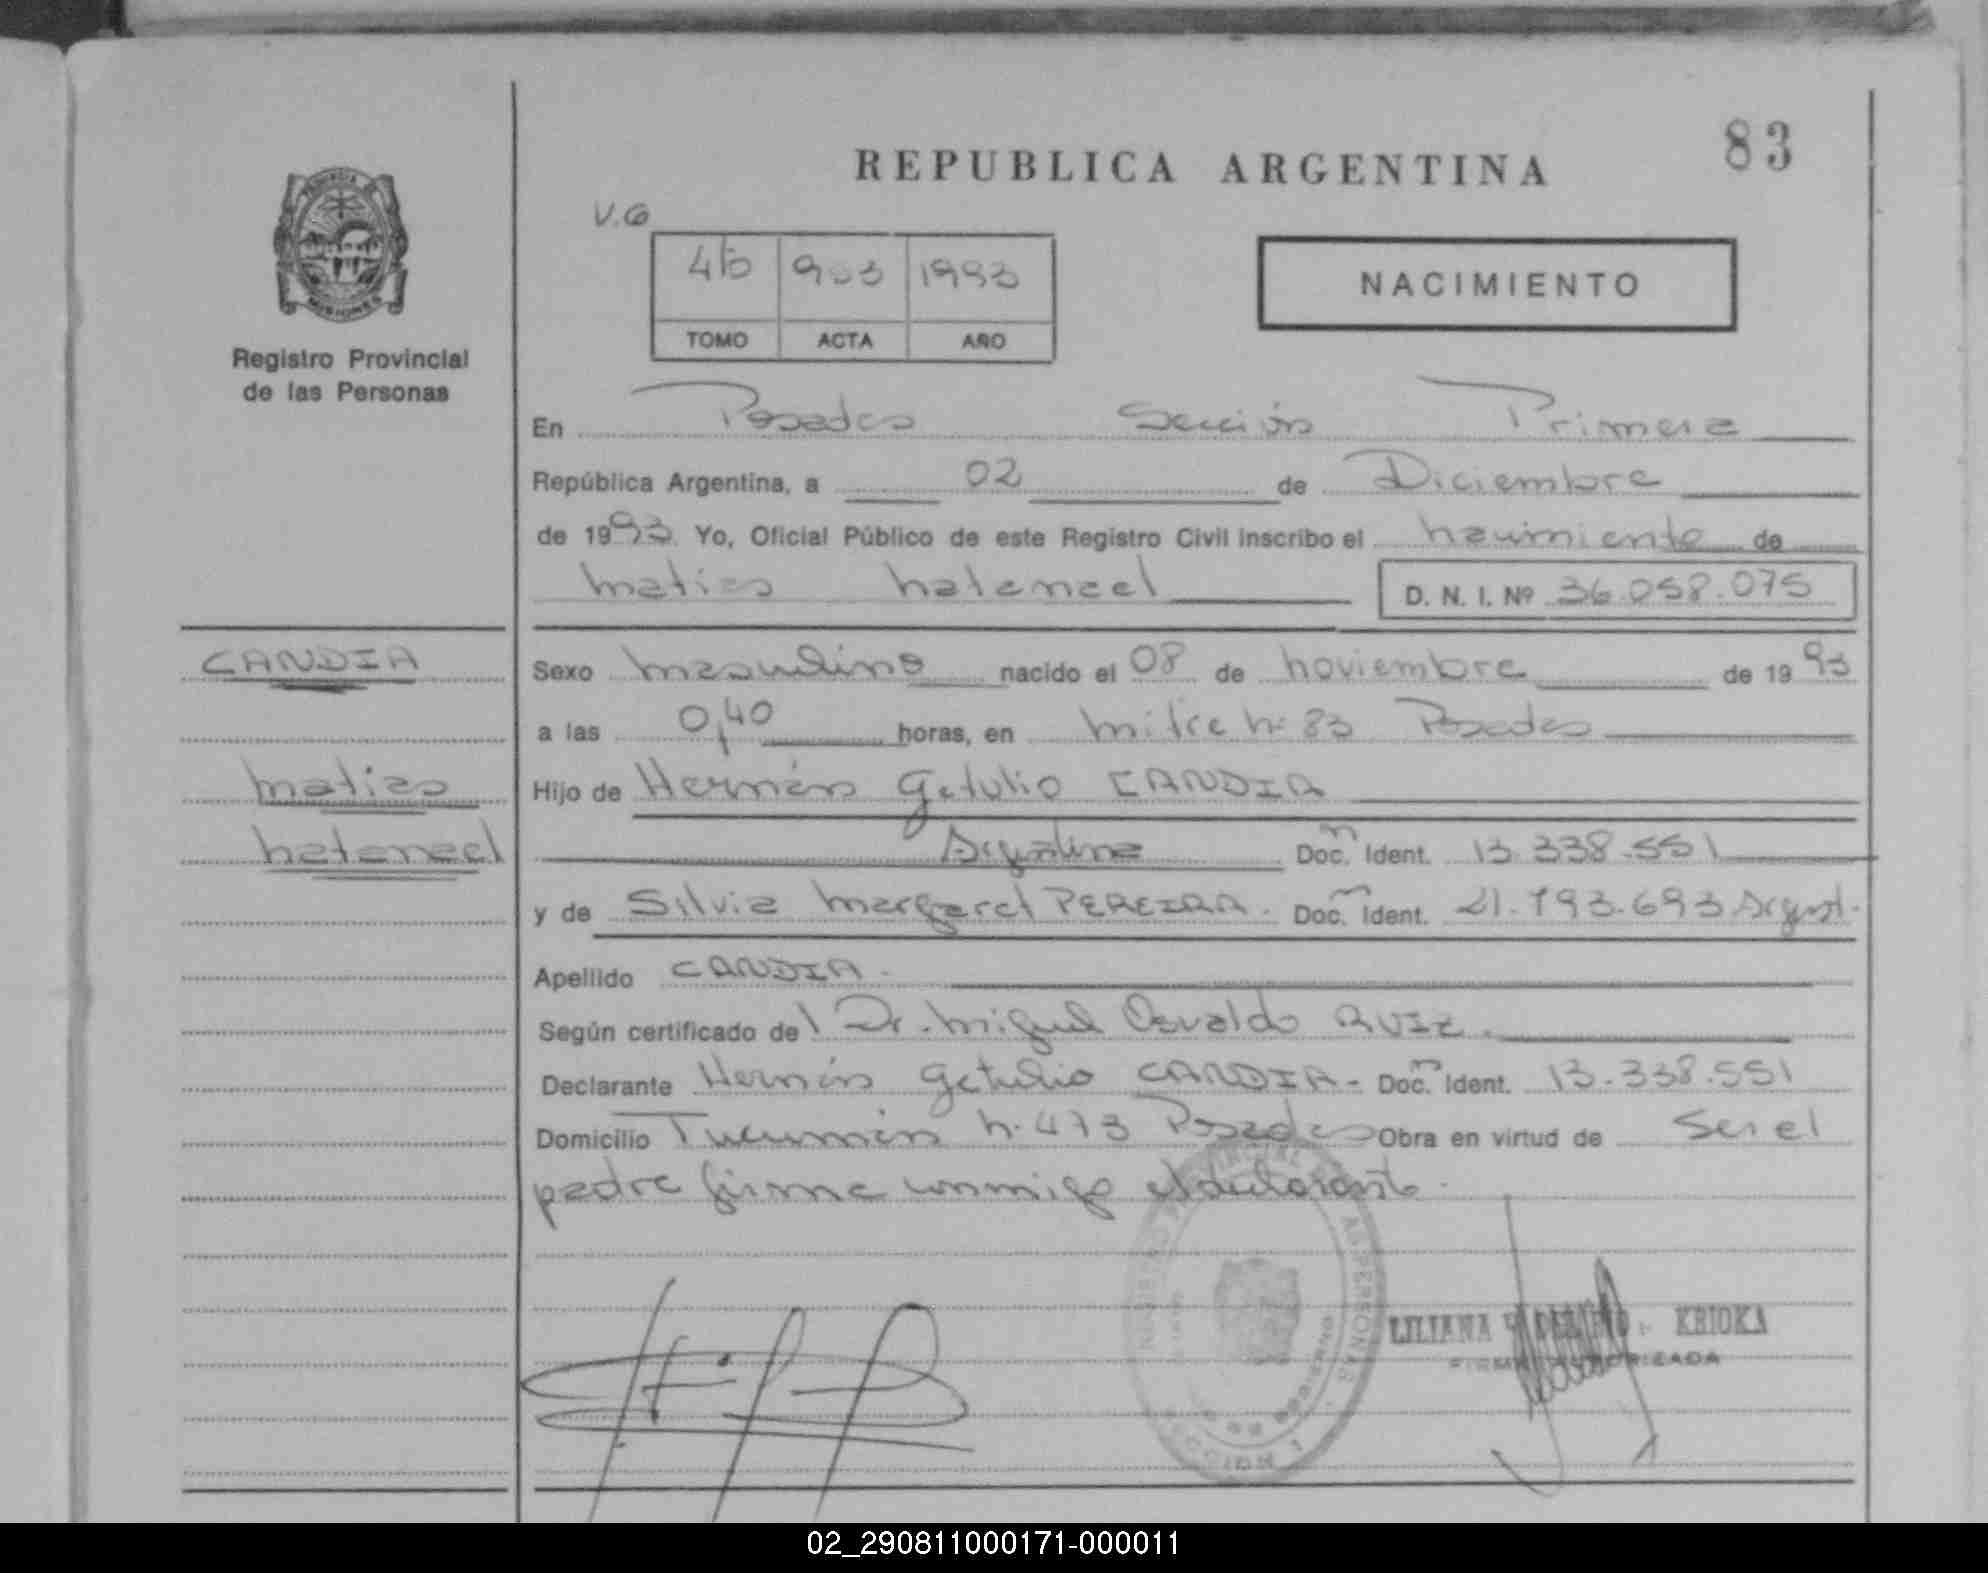 REPUBLICA ARGENTINA
83
PROVINCIA DE MISIONES
Registro Provincial
de las Personas
V.G
903 1993
TOMO ACTA AÑO
NACIMIENTO
En Posadas Sección Primera
República Argentina, a 02 de Diciembre
de 1993. Yo, Oficial Público de este Registro Civil inscribo el nacimiento de
Matias Natanael D. N. I. Nº 36.058.075
CANDIA
Matias
Natanael
Sexo Masculino nacido el 08 de Noviembre de 1993
a las 0,40 horas, en Mitre N. 83 Posadas
Hijo de Hernán Getulio CANDIA
Argentina Doc. Ident. 13.338.551
y de Silvia Margaret PEREIRA. Doc. Ident. 21.793.693 Argent.
Apellido CANDIA.
Según certificado del Dr. Miguel Osvaldo RUIZ.
Declarante Hernán Getulio CANDIA- Doc. Ident. 13.338.551
Domicilio Tucumán N. 473 Posadas Obra en virtud de Ser el
padre firma conmigo el declarante.
REGISTRO PROVINCIAL DE LAS PERSONAS
SECCION 1
LILIANA KRIOKA
FIRMA AUTORIZADA
02_290811000171-000011